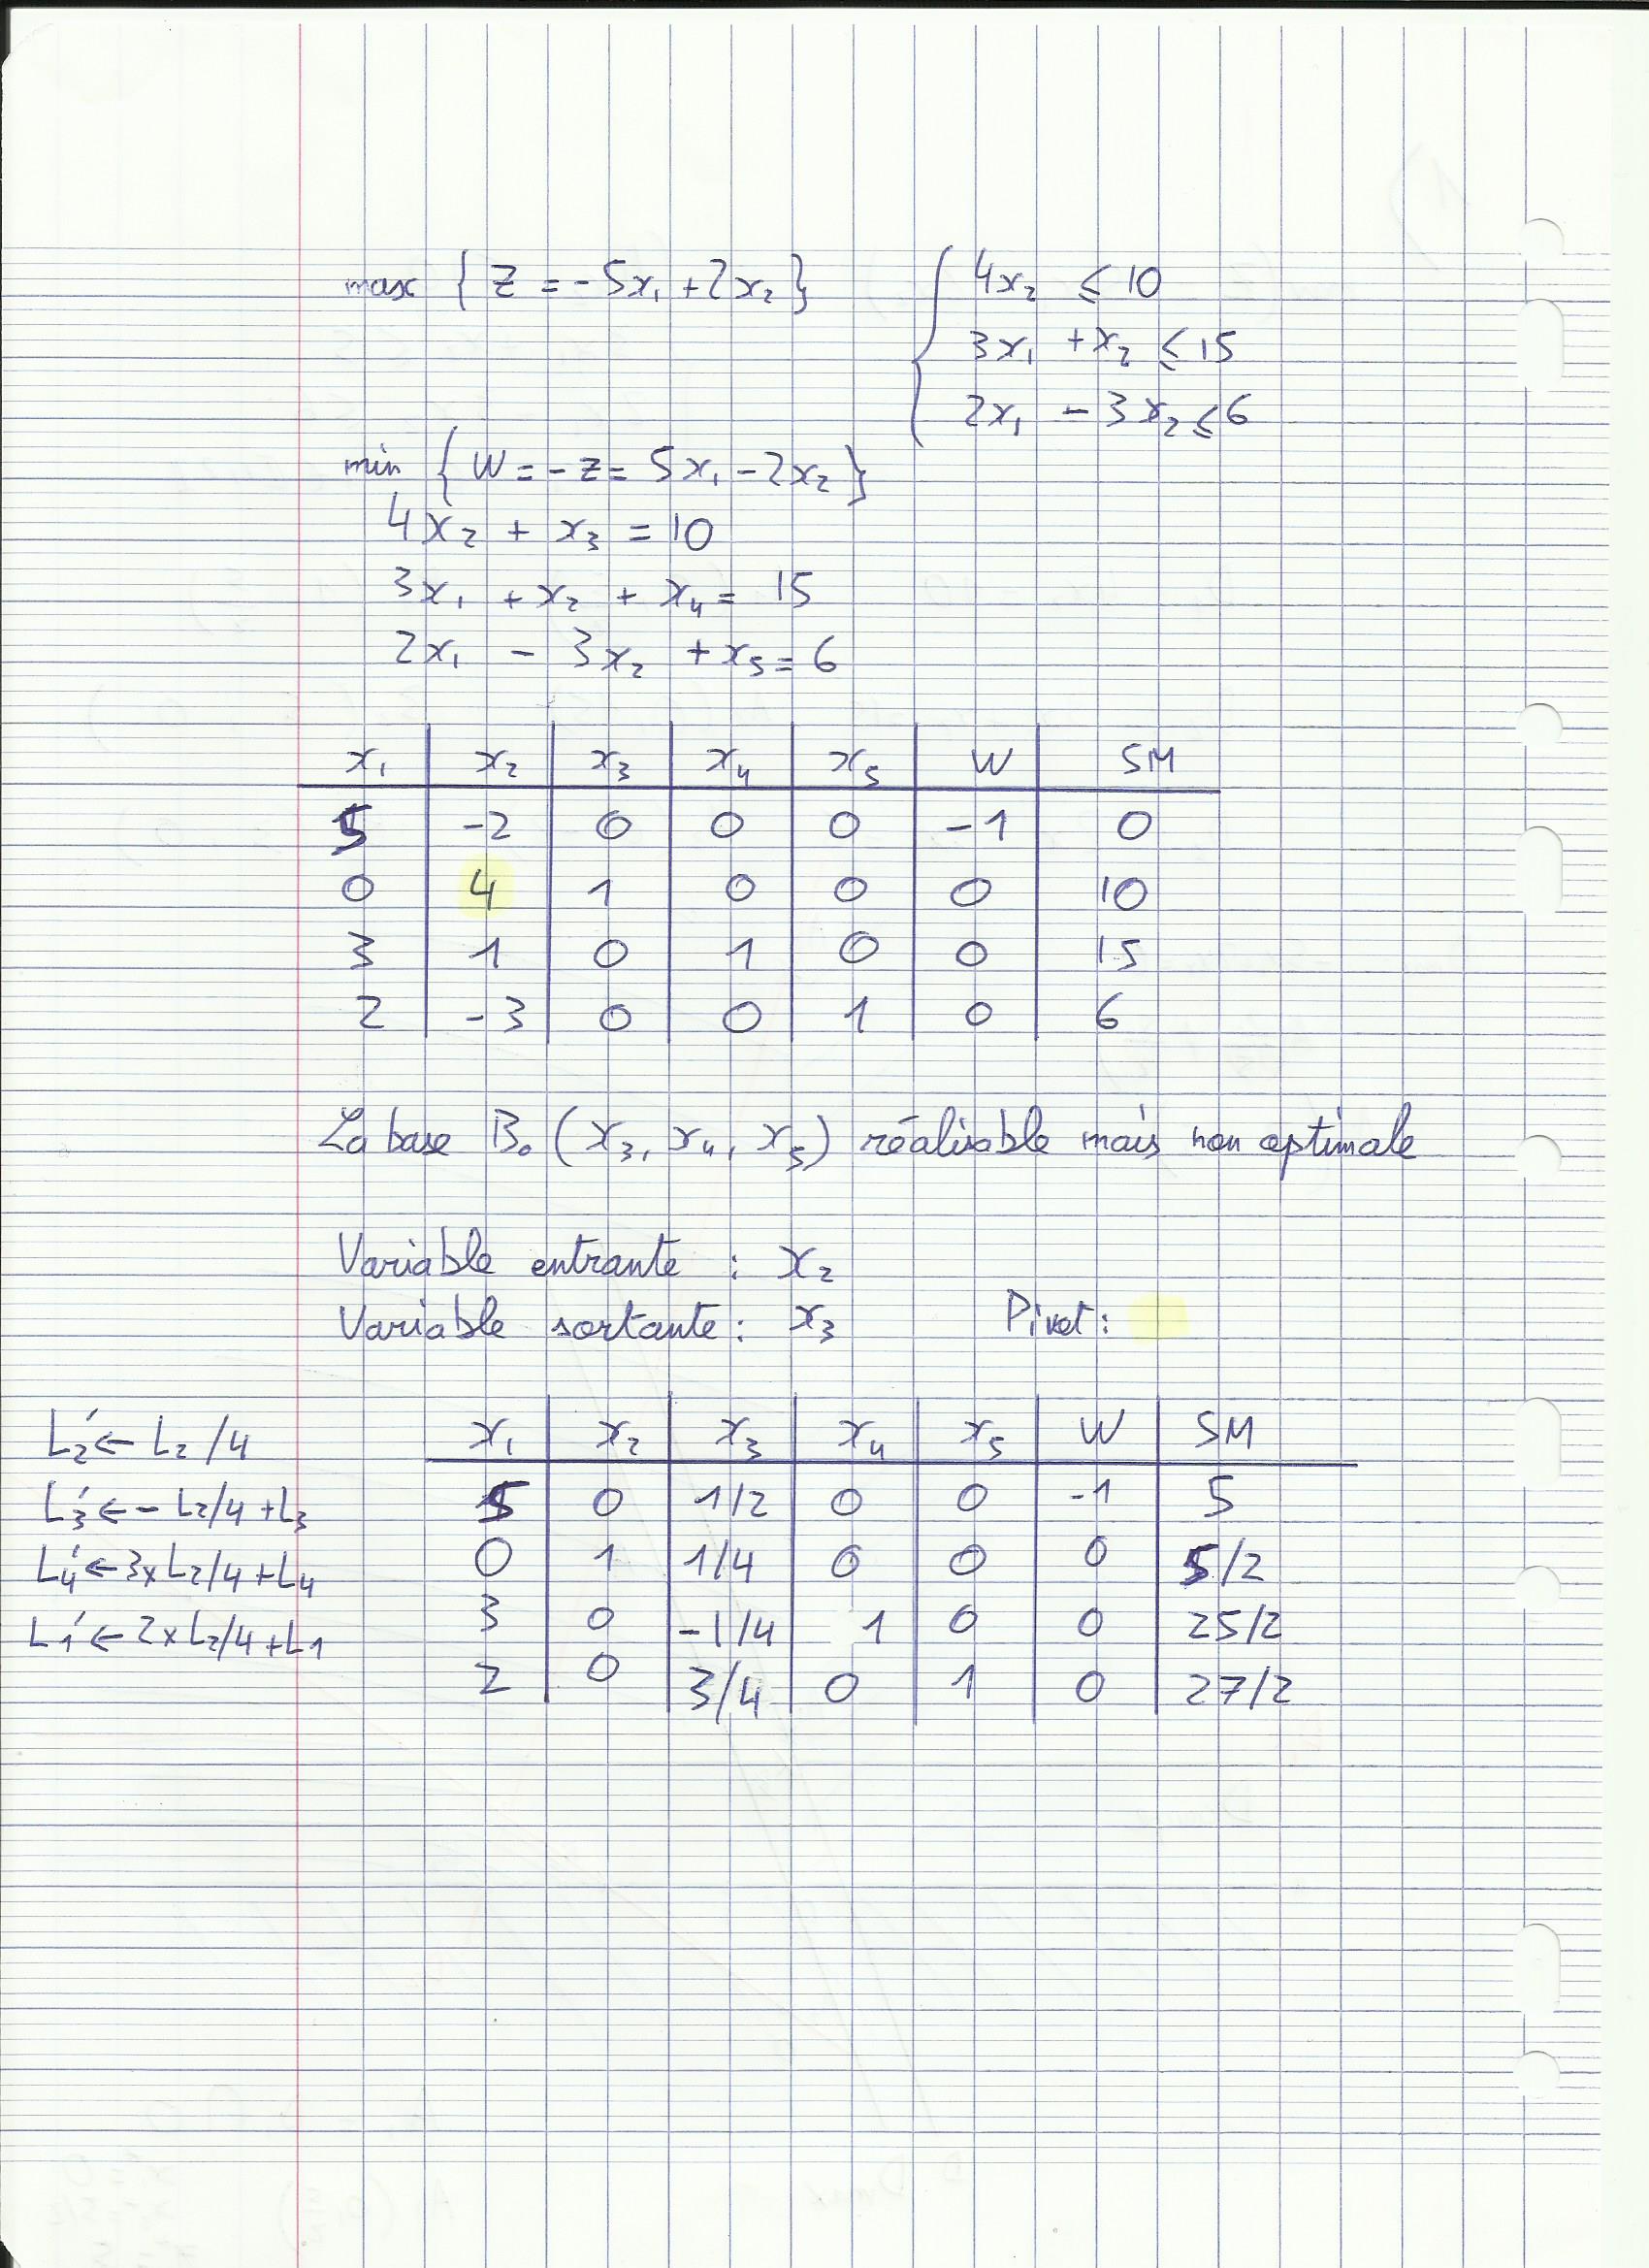 max { Z = -5x₁ + 2x₂ }
4x₂ ≤ 10
3x₁ + x₂ ≤ 15
2x₁ - 3x₂ ≤ 6
min { W = -Z = 5x₁ - 2x₂ }
4x₂ + x₃ = 10
3x₁ + x₂ + x₄ = 15
2x₁ - 3x₂ + x₅ = 6
x₁ x₂ x₃ x₄ x₅ W SM
5 -2 0 0 0 -1 0
0 4 1 0 0 0 10
3 1 0 1 0 0 15
2 -3 0 0 1 0 6
La base B₀ (x₃, x₄, x₅) réalisable mais non optimale
Variable entrante : x₂
Variable sortante : x₃ Pivot :
L₂' ← L₂/4
L₃' ← - L₂/4 + L₃
L₄' ← 3x L₂/4 + L₄
L₁' ← 2x L₂/4 + L1
x₁ x₂ x₃ x₄ x₅ W SM
5 0 1/2 0 0 -1 5
0 1 1/4 0 0 0 5/2
3 0 -1/4 1 0 0 25/2
2 0 3/4 0 1 0 27/2